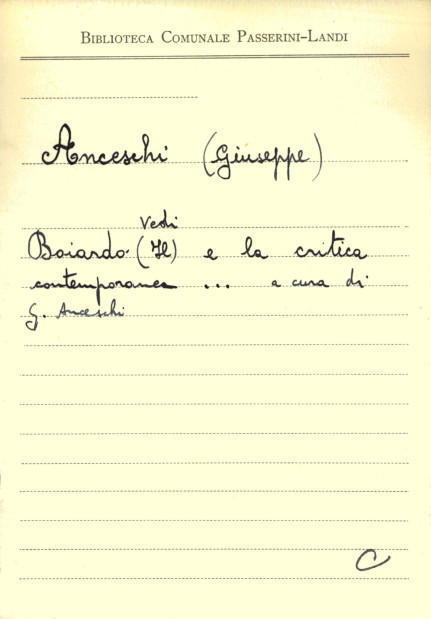 BIBLIOTECA COMUNALE PASSERINI-LANDI
Anceschi (Giuseppe)
Vedi
Boiardo (Il) e la critica
contemporanea ... a cura di
G. Anceschi
C